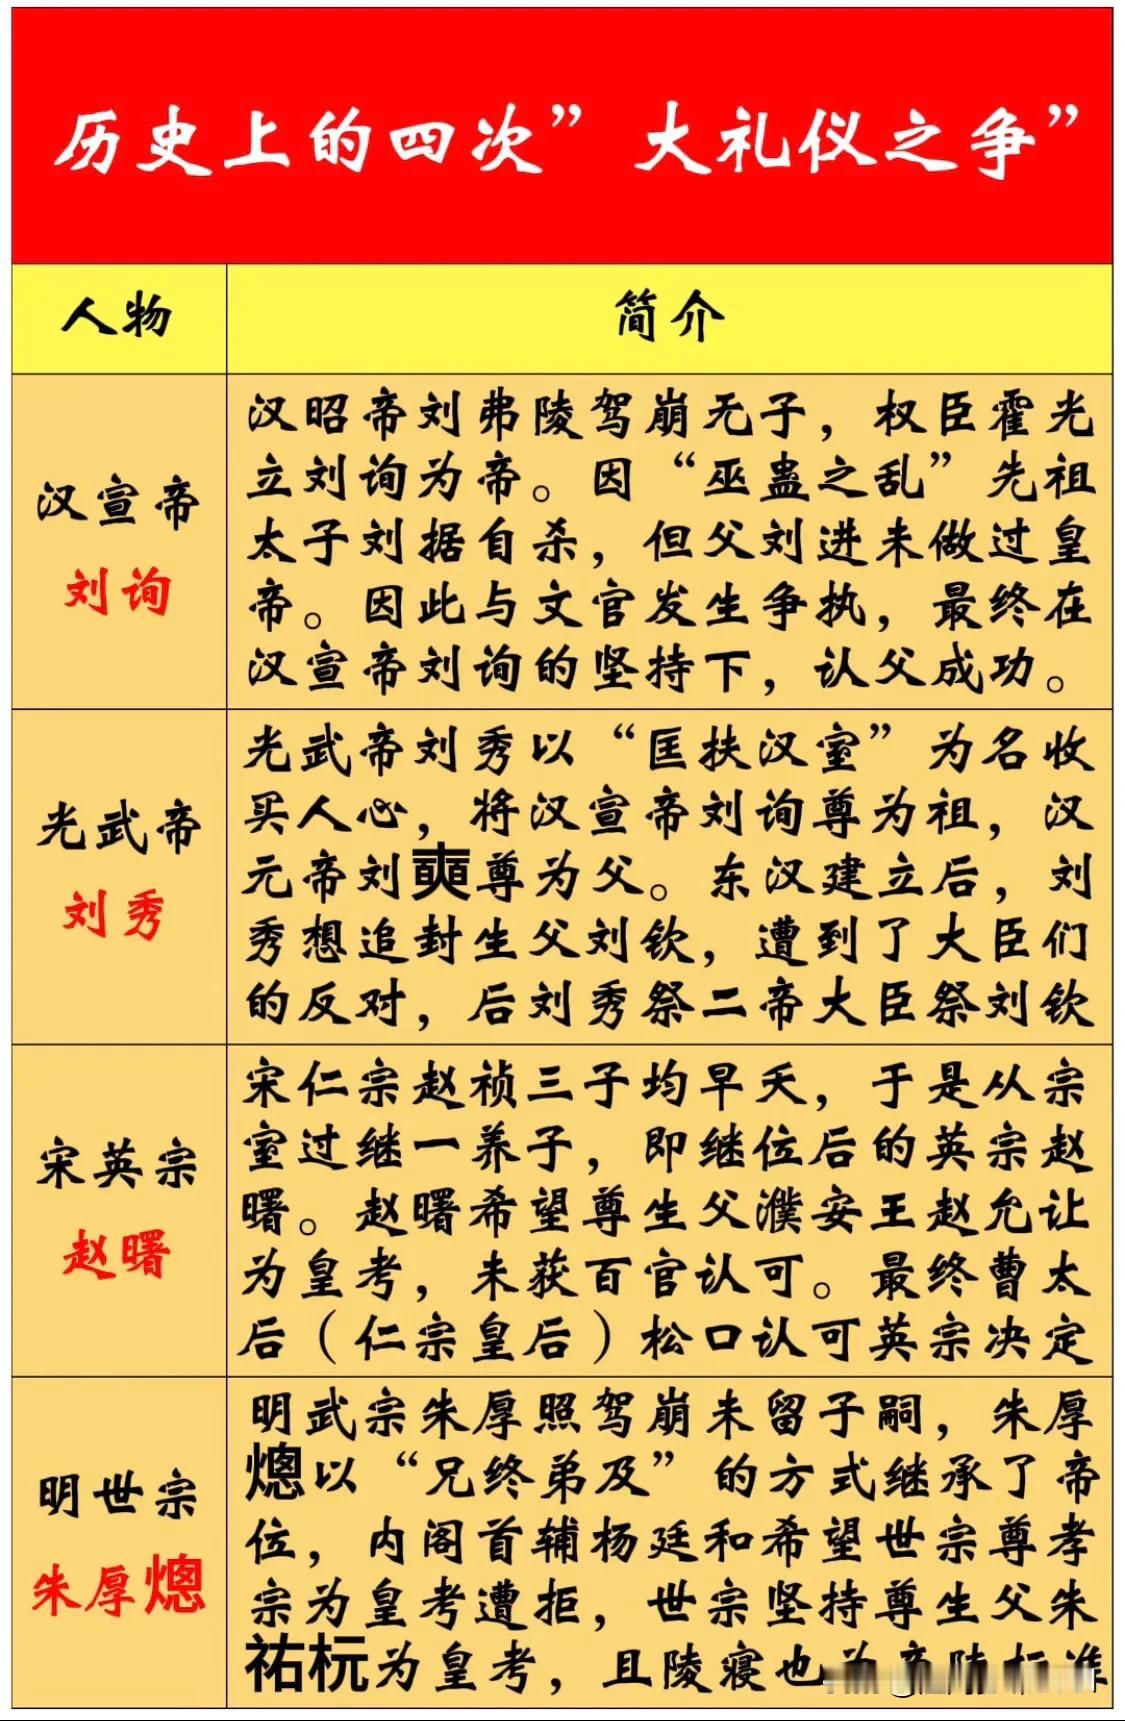 历史上的四次”大礼仪之争”
人物
简介
汉宣帝
刘询
汉昭帝刘弗陵驾崩无子，权臣霍光
立刘询为帝。因“巫蛊之乱”先祖
太子刘据自杀，但父刘进未做过皇
帝。因此与文官发生争执，最终在
汉宣帝刘询的坚持下，认父成功。
光武帝
刘秀
光武帝刘秀以“匡扶汉室”为名收
买人心，将汉宣帝刘询尊为祖，汉
元帝刘奭尊为父。东汉建立后，刘
秀想追封生父刘钦，遭到了大臣们
的反对，后刘秀祭二帝大臣祭刘钦
宋英宗
赵曙
宋仁宗赵祯三子均早夭，于是从宗
室过继一养子，即继位后的英宗赵
曙。赵曙希望尊生父濮安王赵允让
为皇考，未获百官认可。最终曹太
后（仁宗皇后）松口认可英宗决定
明世宗
朱厚熜
明武宗朱厚照驾崩未留子嗣，朱厚
熜以“兄终弟及”的方式继承了帝
位，内阁首辅杨廷和希望世宗尊孝
宗为皇考遭拒，世宗坚持尊生父朱
祐杬为皇考，且陵寝也为帝陵标准